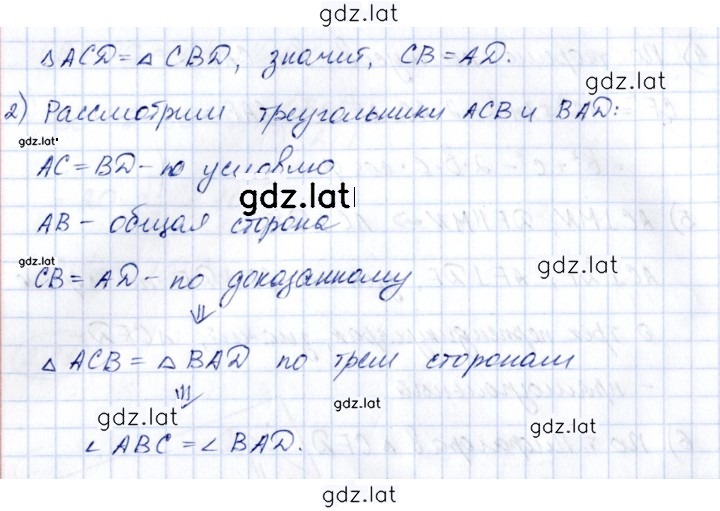 gdz.lat
△ACD = △CBD, значит, CB = AD.
gdz.lat
2) Рассмотрим треугольники ACB и BAD:
gdz.lat
AC = BD - по условию
gdz.lat
AB - общая сторона
gdz.lat
gdz.lat
CB = AD - по доказанному
⇓
△ACB = △BAD по трем сторонам
⇓
gdz.lat
gdz.lat
gdz.lat
∠ABC = ∠BAD.
gdz.lat